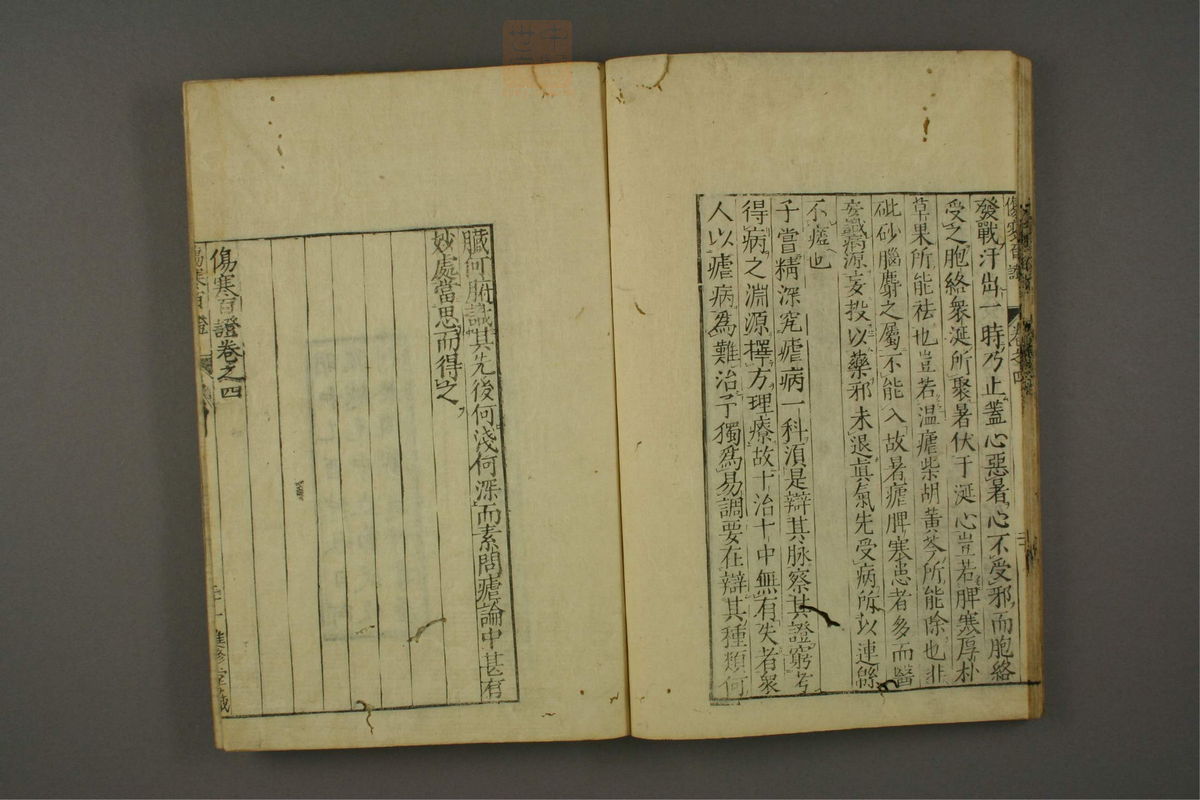 傷寒百證
卷之四
發戰汗出一時乃止蓋心惡暑心不受邪而胞絡
受之胞絡衆涎所聚暑伏于涎心豈若脾寒厚朴
草果所能祛也豈若溫瘧柴胡黃芩所能除也非
砒砂腦麝之屬不能入故暑瘧脾寒患者多而醫
妄識病源妄投以藥邪未退眞氣先受病所以連緜
不瘥也
予嘗精深究瘧病一科須是辯其脉察其證窮考
得病之淵源擇方理療故十治十中無有失者衆
人以瘧病爲難治予獨爲易調要在辯其種類何
臟何腑識其先後何淺何深而素問瘧論中甚有
妙處當思而得之
傷寒百證卷之四
傷寒百證